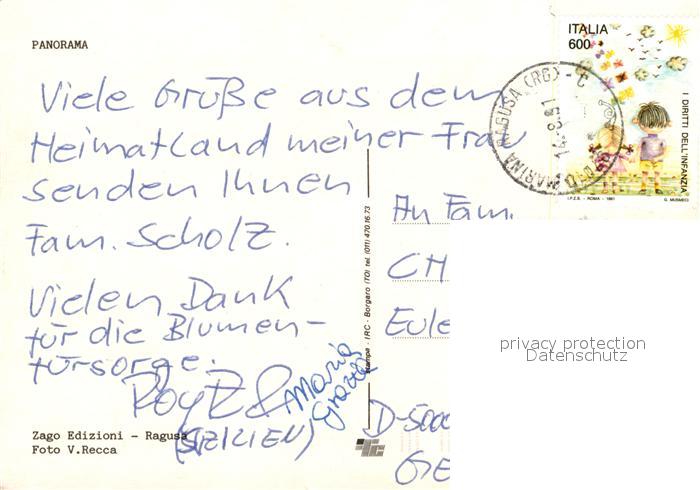 PANORAMA
Viele Grüße aus dem
Heimatland meiner Frau
senden Ihnen
Fam. Scholz.
Vielen Dank
für die Blumen-
fürsorge.
Maria
(SIZILIEN)
Zago Edizioni - Ragusa
Foto V.Recca
Stampa - IRC - Borgaro (TO) tel. (011) 470.16.73
ITALIA
600
I DIRITTI DELL'INFANZIA
I.P.Z.S. - ROMA - 1991
G. MUSMECI
MARINA RAGUSA (RG) - C
14.8.91
An Fam.
CH
Eule
D-5000
GE
privacy protection
Datenschutz